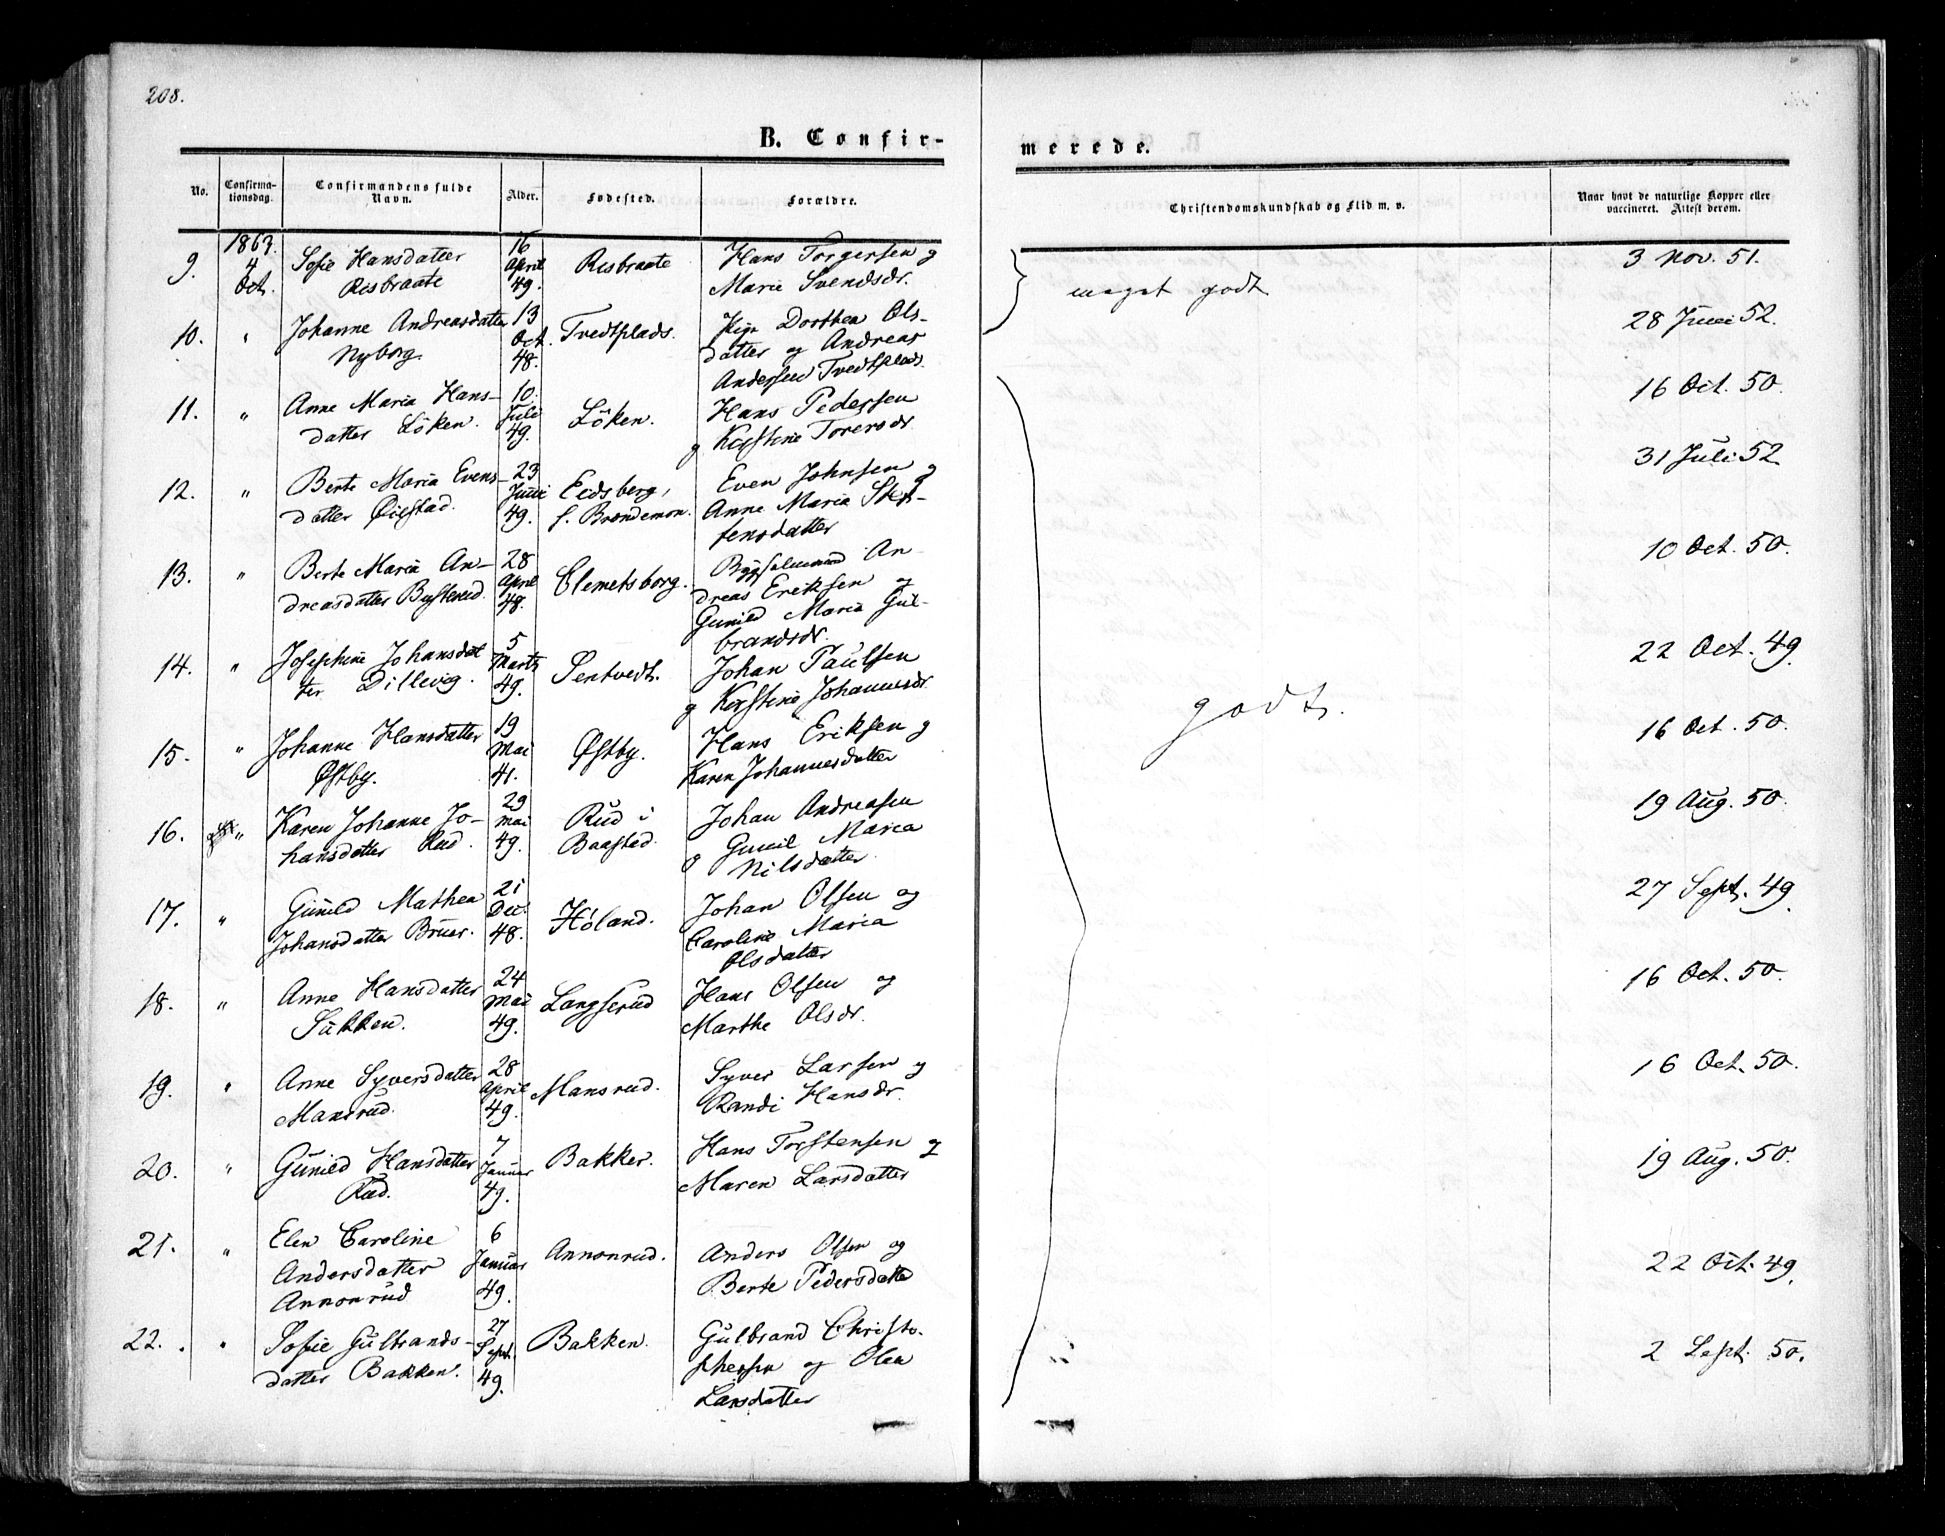 208.
B. Confir-
merede.
No.
Confirma-
tionsdag.
Confirmandens fulde
Navn.
Alder.
Fødested.
Forældre.
Christendomskundskab og Flid m. v.
Naar havt de naturlige Kopper eller
vaccineret. Attest derom.
9. 1863. 4 Oct. Sofie Hansdatter Risbraate 16 April 49. Risbraate Hans Torgersen og Marie Svendsdr. meget godt 3 Nov. 51.
10. " Johanne Andreasdatter Nyborg. 13 Oct. 48. Tvedtplads. Pige Dorthea Ols- datter og Andreas Andersen Tvedtplads 28 Juni 52.
11. " Anne Maria Hans- datter Löken. 10. Juli 49. Löken. Hans Pedersen og Kirstine Torersdr 16 Oct. 50.
12. " Berte Maria Evens- datter Øiestad. 23 Juni 49. Eidsberg, f. Brandemon. Even Johnsen og Anne Maria Stef- fensdatter 31 Juli 52
13. " Berte Maria An- dreasdatter Busterud. 28 April 48. Clemetsborg. Bygselmand An- dreas Eriksen og Gunild Maria Gul- brandsdr. 10 Oct. 50.
14. " Josephine Johansdat ter Dillevig. 5 Marts 49. Sentvedt. Johan Paulsen og Kirstine Johannesdr. godt. 22 Oct. 49.
15. " Johanne Hansdatter Østby. 19 Mai 41. Østby. Hans Eriksen og Karen Johannesdatter 16 Oct. 50.
16. " Karen Johanne Jo- hansdatter Rud. 29 Mai 49. Rud i Baastad. Johan Andreasen og Gunil Maria Nilsdatter 19 Aug. 50.
17. " Gunild Mathea Johansdatter Bruer. 21 Dec. 48. Høland. Johan Olsen og Caroline Maria Olsdatter 27 Sept. 49.
18. " Anne Hansdatter Sukken. 24 Mai 49. Langserud Hans Olsen og Marthe Olsdr. 16 Oct. 50.
19. " Anne Syversdatter Mansrud. 28 April 49. Mansrud. Syver Larsen og Randi Hansdr. 16 Oct. 50.
20. " Gunild Hansdatter Rud. 7 Januar 49. Bakker. Hans Torstensen og Maren Larsdatter 19 Aug. 50.
21. " Elen Caroline Andersdatter Annonrud 6 Januar 49. Annonrud. Anders Olsen og Berte Pedersdatter 22 Oct. 49.
22. " Sofie Gulbrands- datter Bakken. 27 Sept. 49. Bakken. Gulbrand Christo- phersen og Olea Larsdatter 2 Sept. 50.